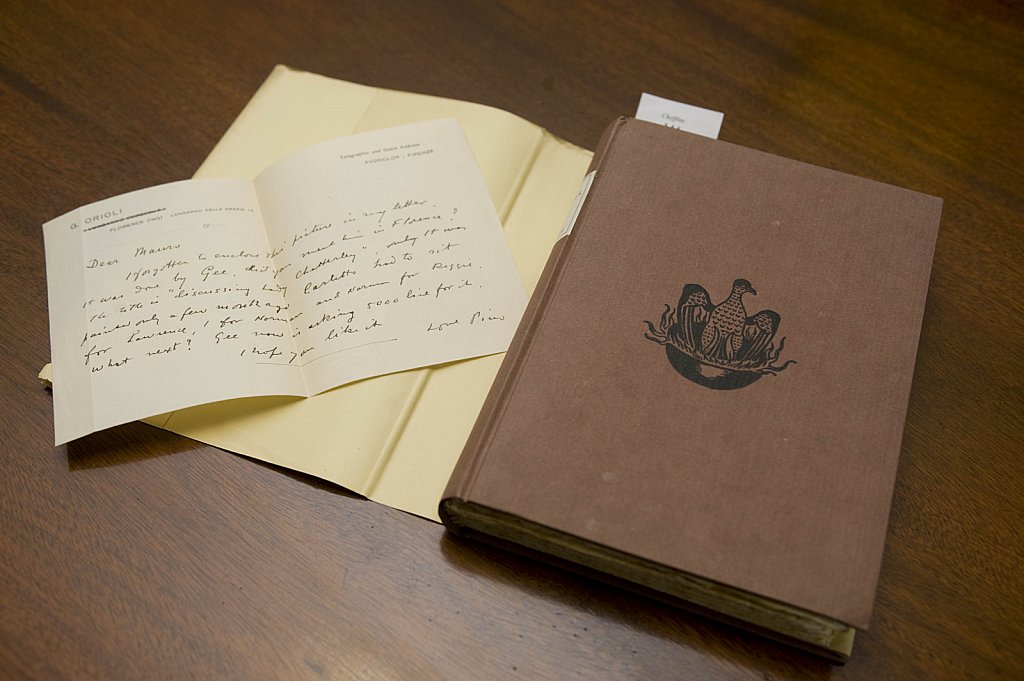 G. ORIOLI
LUNGARNO DELLE GRAZIE
FLORENCE (Italy)
Telegraphic and Cable Address
AVORIOLOR - FIRENZE
Dear Mauro
I forgotten to enclose this picture in my letter.
It was done by Gee. did you meet him in Florence?
The title is "discussing Lady Chatterley". only it was
painted only a few months ago Carletto had to sit
for Lawrence, I for Norman and Norman for Reggie.
what next? Gee now is asking 5000 lire for it.
I hope you like it
Love Pino